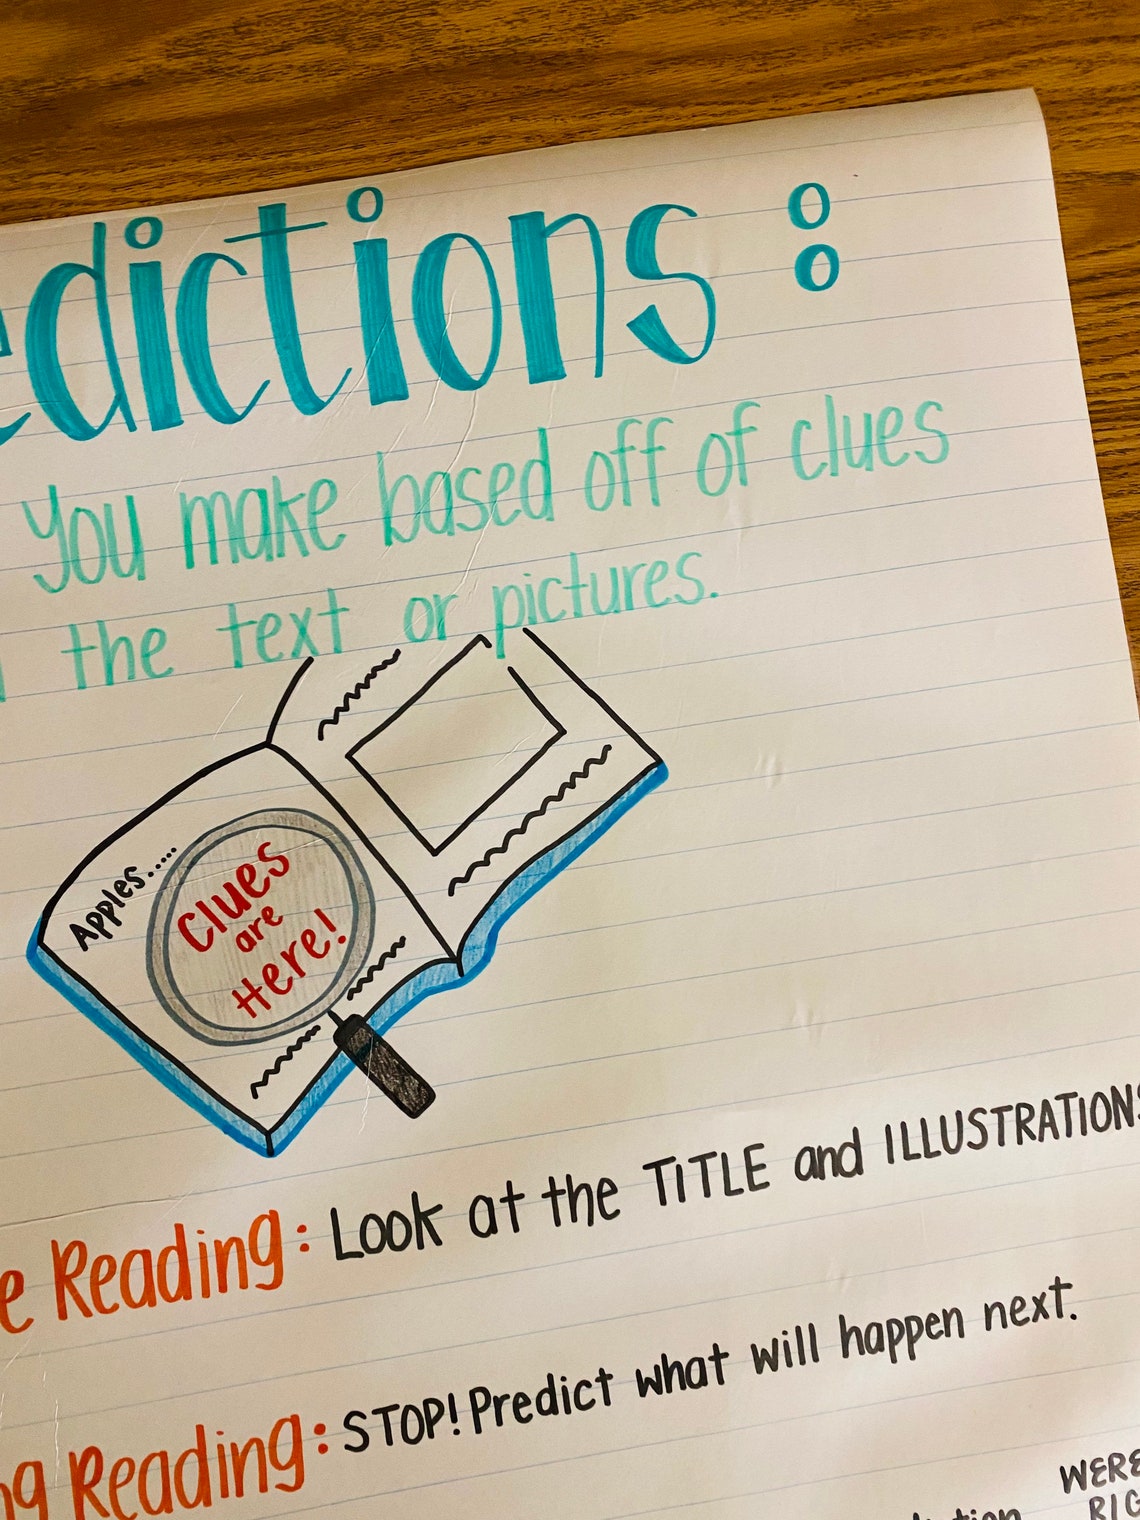 edictions:
you make based off of clues
the text or pictures.
Apples.....
Clues
are
Here!
e Reading: Look at the TITLE and ILLUSTRATIONS
ng Reading: STOP! Predict what will happen next.
WERE
RIG